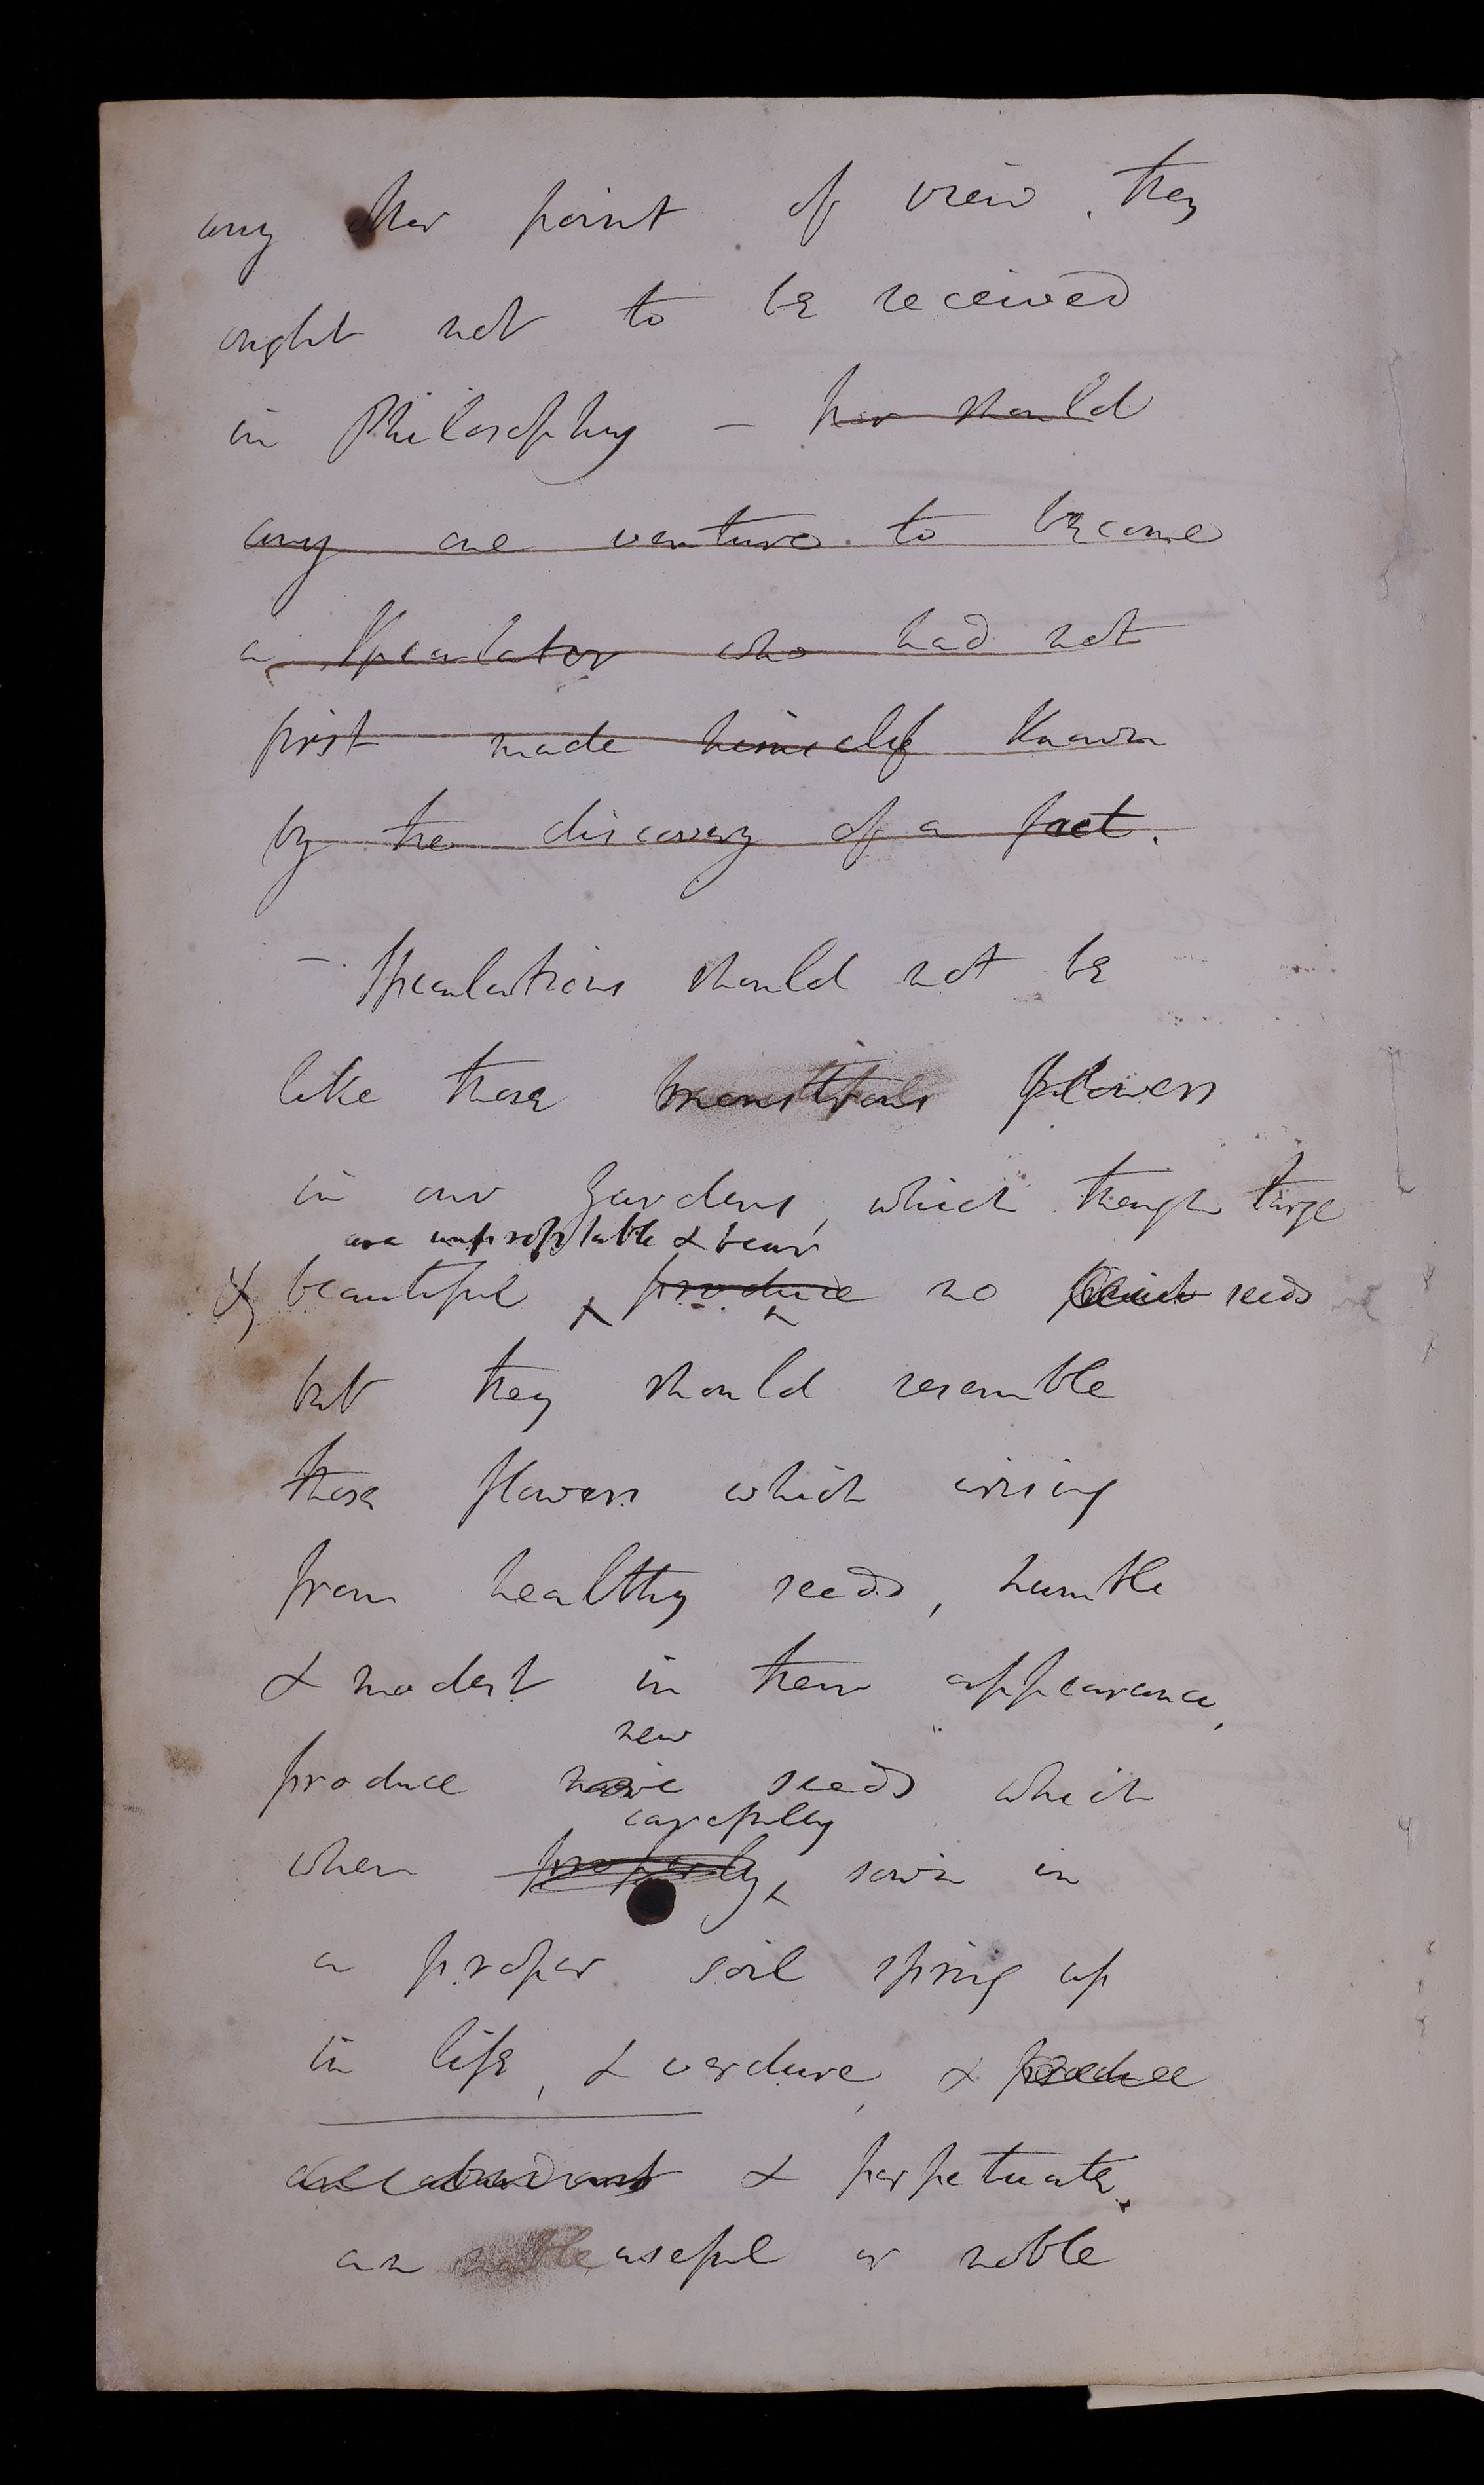 any other point of view, they
ought not to be received
in Philosophy – nor should
any one venture to become
a Speculator who had not
first made himself known
by the discovery of a fact.
– Speculations should not be
like those monstrous flowers
in our gardens, which though large
are unprofitable & bear
& beautiful produce no seeds
but they should resemble
those flowers which arising
from healthy seeds, humble
& modest in their appearance,
new
produce seeds which
carefully
when properly sown in
a proper soil spring up
in life, & verdure, & produce
& perpetuate
an noble useful or noble